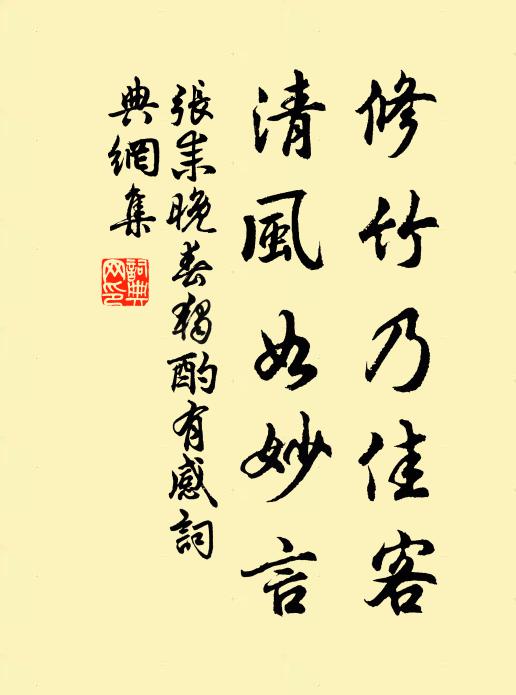 修竹乃佳客
清風如妙言
張耒晚春獨酌有感詞
典網集
詞典
网印